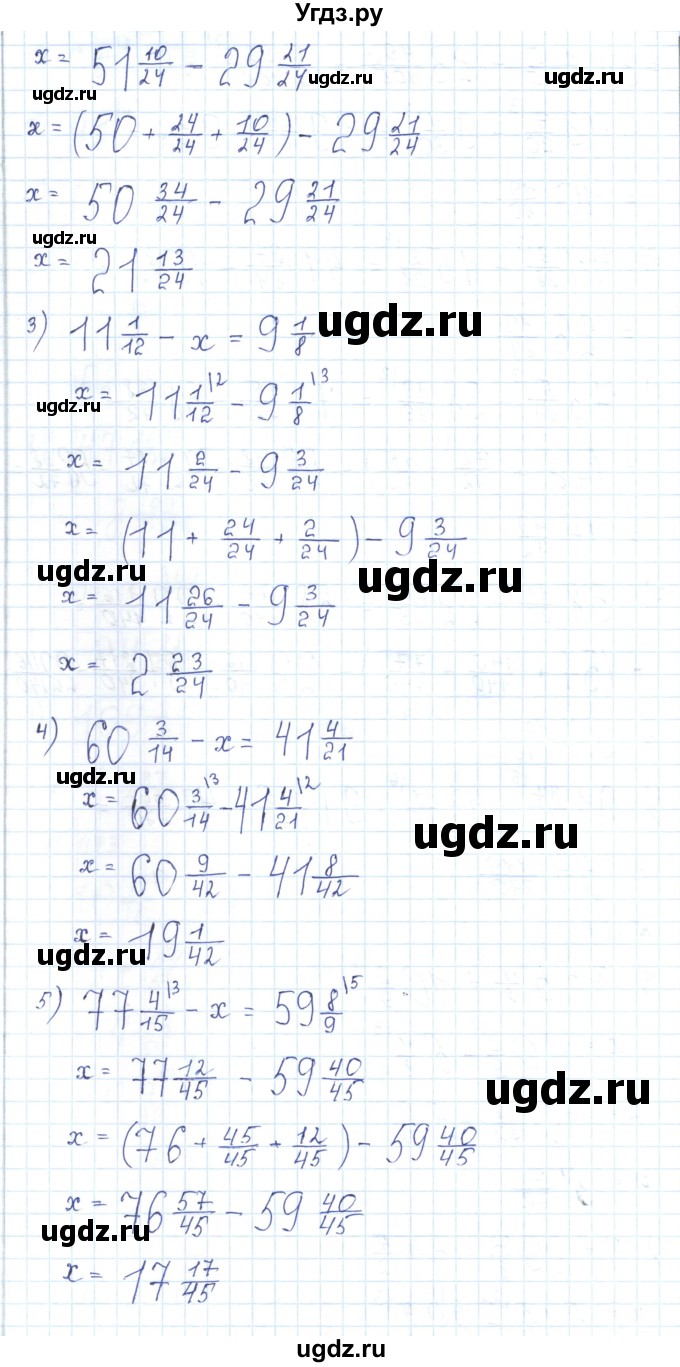 Угдз.ру
x = 51 10/24 - 29 21/24
ugdz.ru ugdz.ru ugdz.ru
x = (50 + 24/24 + 10/24) - 29 21/24
x = 50 34/24 - 29 21/24
ugdz.ru
x = 21 13/24
3) 11 1/12 - x = 9 1/8
ugdz.ru
x = 11 1/12 \2 - 9 1/8 \3
ugdz.ru
x = 11 2/24 - 9 3/24
x = (11 + 24/24 + 2/24) - 9 3/24
ugdz.ru ugdz.ru
x = 11 26/24 - 9 3/24
x = 2 23/24
4) 60 3/14 - x = 41 4/21
ugdz.ru
x = 60 3/14 \3 - 41 4/21 \2
ugdz.ru
x = 60 9/42 - 41 8/42
x = 19 1/42
ugdz.ru
5) 77 4/15 \3 - x = 59 8/9 \5
x = 77 12/45 - 59 40/45
ugdz.ru
x = (76 + 45/45 + 12/45) - 59 40/45
x = 76 57/45 - 59 40/45
ugdz.ru
x = 17 17/45
ugdz.ru